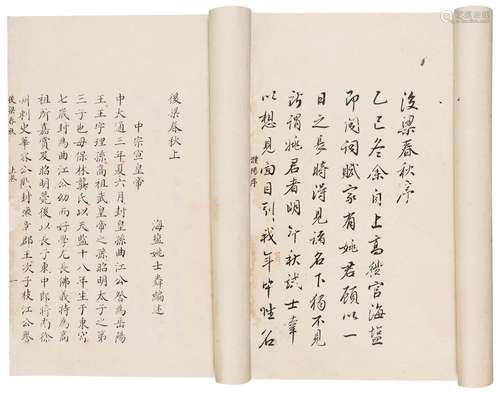 後梁春秋序
乙巳冬余自上高從宦海鹽
即聞詞賦家有姚君顧以一
日之長時得見諸名下獨不見
所謂姚君者明秋試士幸
以想見面目引我年姓名
濮陽序
後梁春秋上
海鹽姚士粦編述
中宗宣皇帝
中大通三年夏六月封皇孫曲江公詧為岳陽
王王字理孫高祖武皇帝之孫昭明太子之第
三子也母保林龔氏以天監十八年生于東宮
七歲封為曲江公幼而好學尤長佛義特為高
祖所嘉賞及昭明薨後以長子東中郎將南徐
州刺史華容公歡封豫章郡王次子枝江公譽
後梁春秋 上卷 一